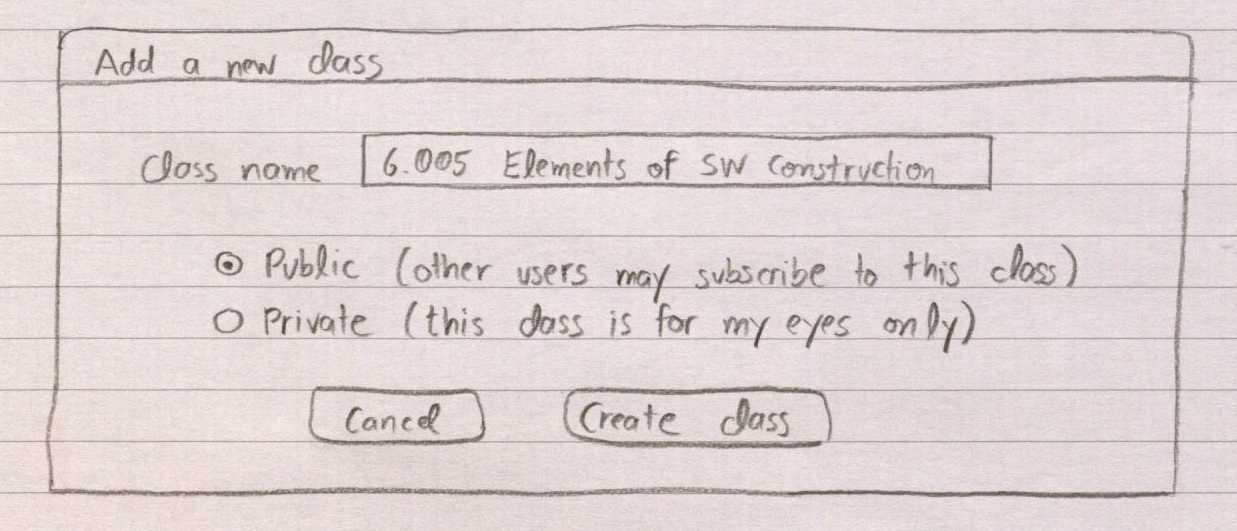 Add a new class
Class name 6.005 Elements of SW Construction
Public (other users may subscribe to this class)
Private (this class is for my eyes only)
Cancel Create class